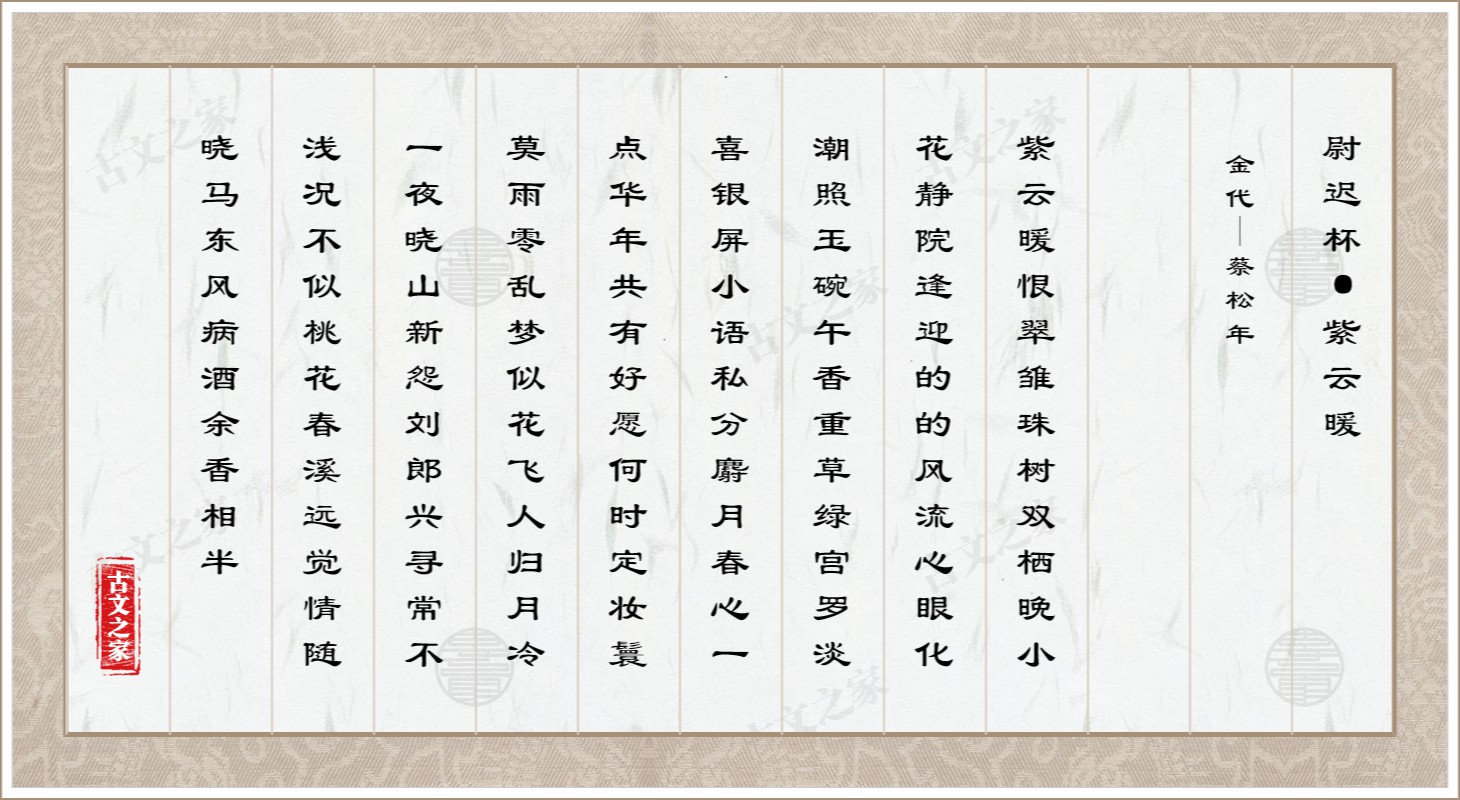 尉迟杯●紫云暖
金代—蔡松年
紫云暖恨翠雏珠树双栖晚小
花静院逢迎的的风流心眼化
潮照玉碗午香重草绿宫罗淡
喜银屏小语私分麝月春心一
点华年共有好愿何时定妆鬟
莫雨零乱梦似花飞人归月冷
一夜晓山新怨刘郎兴寻常不
浅况不似桃花春溪远觉情随
晓马东风病酒余香相半
古文之家
古文之家
古文之家
古文之家
古文之家
古文之家
古文之家